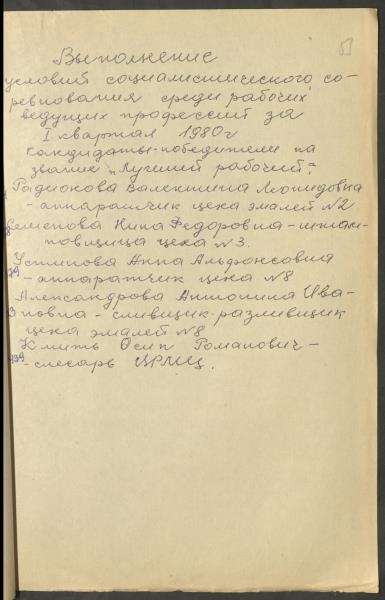 Выполнение
условий социалистического со-
ревнования среди рабочих
ведущих профессий за
I квартал 1980г
кандидаты-победители на
звание "Лучший рабочий"
Родионова Валентина Леонидовна
- аппаратчик цеха эмалей №2
Семенова Нина Федоровна - штам-
повщица цеха №3.
Устинова Анна Альфонсовна
- аппаратчик цеха №8
Александрова Антонина Ива-
новна - сливщик-разливщик
цеха эмалей №8
Клить Осип Романович -
- слесарь ЦРМЦ.